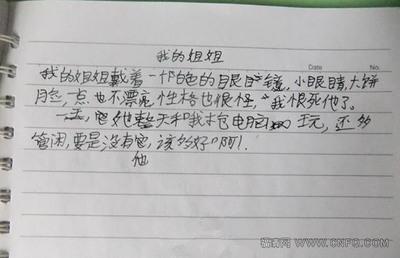 我的姐姐
Date No.
我的姐姐戴着一个白色的眼镜，小眼睛，大饼
脸，一点也不漂亮，性格也很怪，“我恨死他了。
一天，她整天和我抢电脑玩，还多
管闲，要是没有它，该多好啊！
他
猫猫网 WWW.CNFG.COM